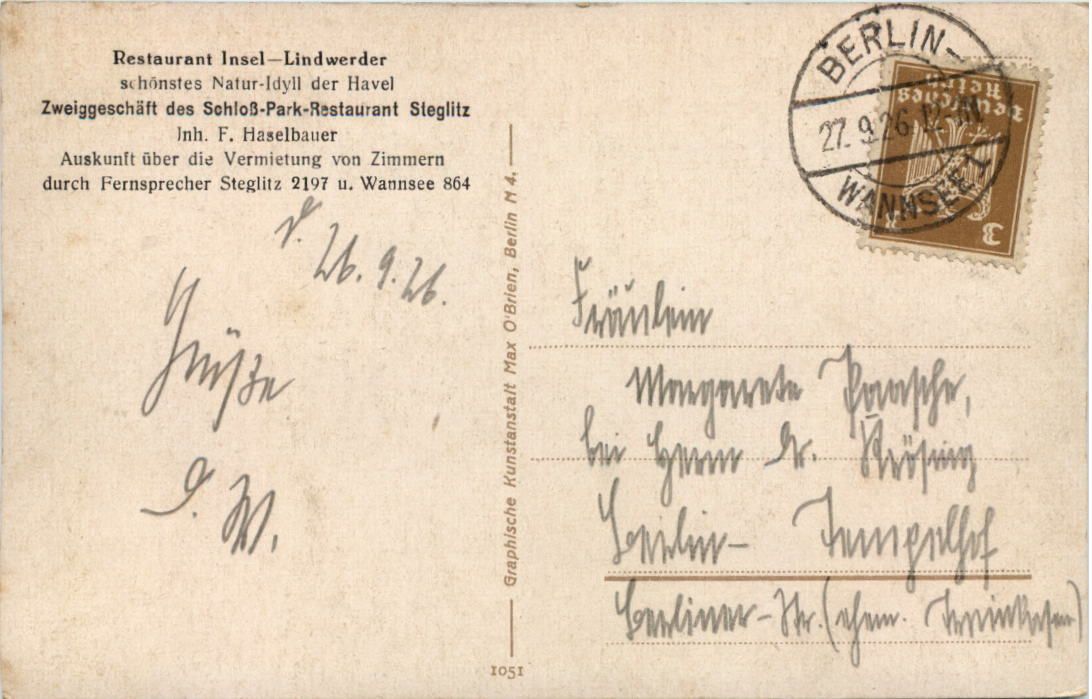 Restaurant Insel—Lindwerder
schönstes Natur-Idyll der Havel
Zweiggeschäft des Schloß-Park-Restaurant Steglitz
Inh. F. Haselbauer
Auskunft über die Vermietung von Zimmern
durch Fernsprecher Steglitz 2197 u. Wannsee 864
d. 26.9.26.
Grüße
D. W.
Graphische Kunstanstalt Max O'Brien, Berlin N 4.
1051
BERLIN-
27.9.26. 12-1N
WANNSEE
Deutsches
Reich
3
Fräulein
Margarete Paasche,
bei Herrn Dr.
Berlin- Tempelhof
Berliner-Str. (ehem.